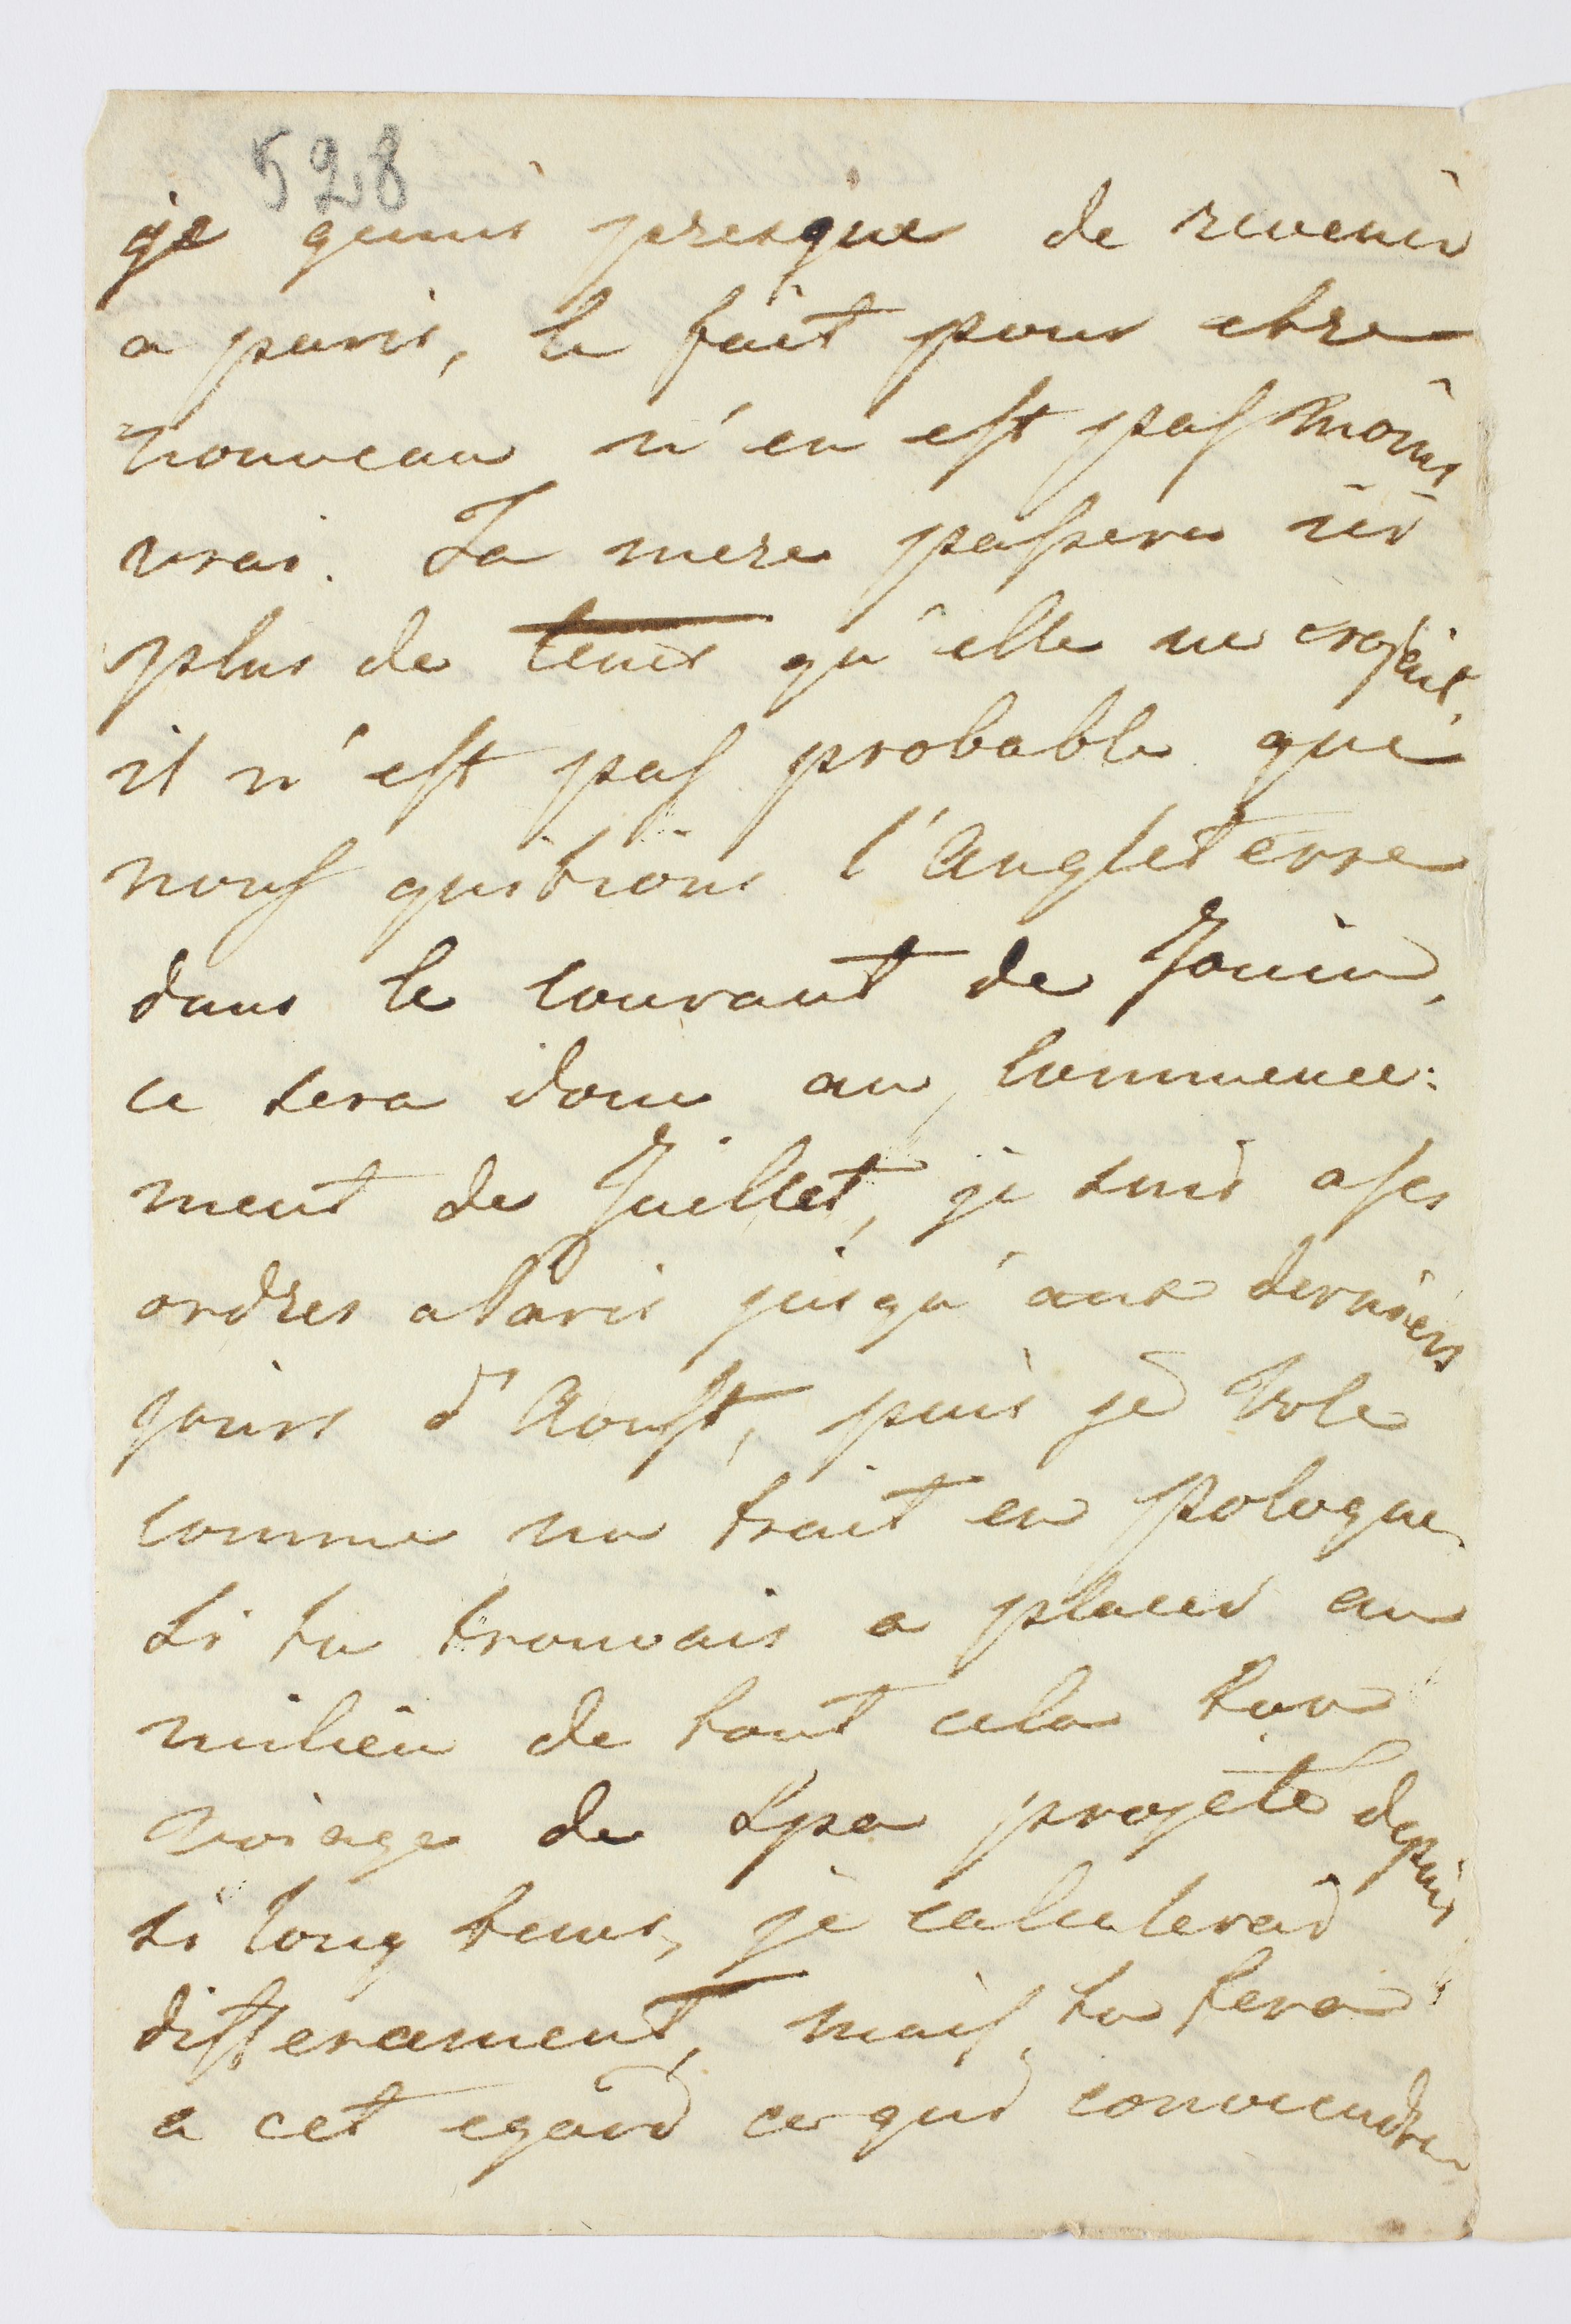 528
je gemis presque de revenir
a paris, le fait pour etre
nouveau n'en est pas moins
vrai. La mere passera ici
plus de tems qu'elle ne croyait,
il n'est pas probable que
nous quitions l'Angleterre
dans le courant de Jouin,
ce sera donc au commence:
ment de Juillet, je suis a ses
ordres a Paris jusqu'aux derniers
jours d'Aoust, puis je vole
comme un trait en pologne
si tu trouvais a placer au
milieu de tout cela ton
voiage de Spa projeté depuis
si long tems, je calulerai
differament, mais tu fera
a cet egard ce qui conviendra